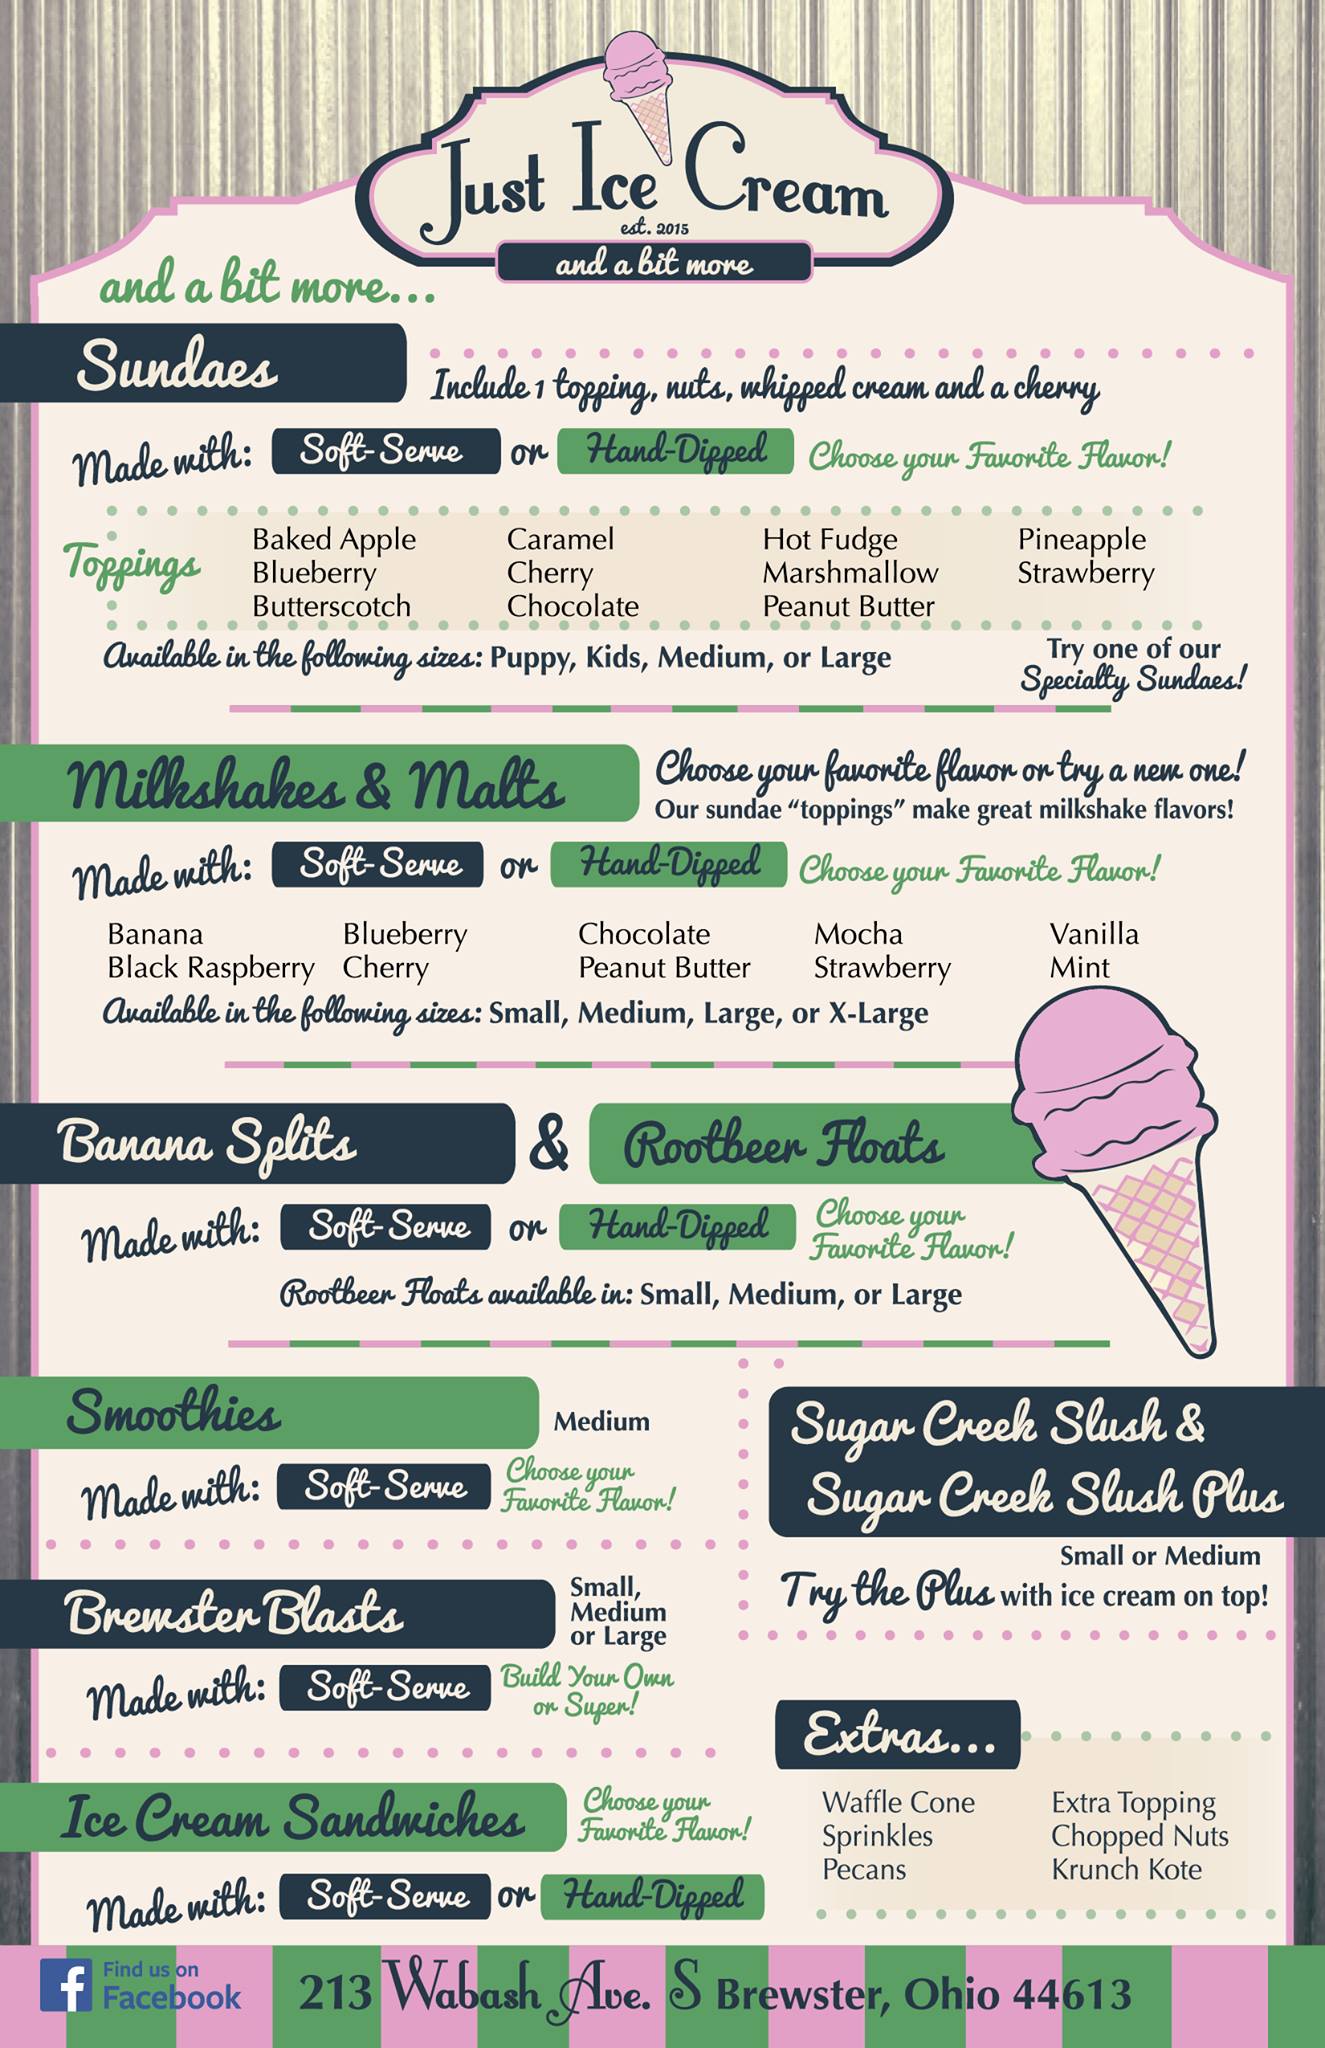 Just Ice Cream
est. 2015
and a bit more
and a bit more...
Sundaes
Include 1 topping, nuts, whipped cream and a cherry
Made with: Soft-Serve or Hand-Dipped Choose your Favorite Flavor!
Toppings
Baked Apple Caramel Hot Fudge Pineapple
Blueberry Cherry Marshmallow Strawberry
Butterscotch Chocolate Peanut Butter
Available in the following sizes: Puppy, Kids, Medium, or Large
Try one of our
Specialty Sundaes!
Milkshakes & Malts
Choose your favorite flavor or try a new one!
Our sundae "toppings" make great milkshake flavors!
Made with: Soft-Serve or Hand-Dipped Choose your Favorite Flavor!
Banana Blueberry Chocolate Mocha Vanilla
Black Raspberry Cherry Peanut Butter Strawberry Mint
Available in the following sizes: Small, Medium, Large, or X-Large
Banana Splits & Rootbeer Floats
Made with: Soft-Serve or Hand-Dipped
Choose your
Favorite Flavor!
Rootbeer Floats available in: Small, Medium, or Large
Smoothies
Medium
Made with: Soft-Serve
Choose your
Favorite Flavor!
Brewster Blasts
Small,
Medium
or Large
Made with: Soft-Serve
Build Your Own
or Super!
Ice Cream Sandwiches
Choose your
Favorite Flavor!
Made with: Soft-Serve or Hand-Dipped
Sugar Creek Slush &
Sugar Creek Slush Plus
Small or Medium
Try the Plus with ice cream on top!
Extras...
Waffle Cone Extra Topping
Sprinkles Chopped Nuts
Pecans Krunch Kote
f
Find us on
Facebook
213 Wabash Ave. S Brewster, Ohio 44613